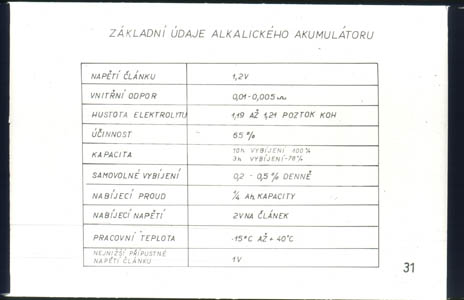 ZÁKLADNÍ ÚDAJE ALKALICKÉHO AKUMULÁTORU
NAPĚTÍ ČLÁNKU 1,2V
VNITŘNÍ ODPOR 0,01-0,005 Ω
HUSTOTA ELEKTROLYTU 1,19 AŽ 1,21 POZTOK KOH
ÚČINNOST 65 %
KAPACITA 10h VYBÍJENÍ 100%
3h VYBÍJENÍ-78%
SAMOVOLNÉ VYBÍJENÍ 0,2 - 0,5 % DENNĚ
NABÍJECÍ PROUD Ah KAPACITY
NABÍJECÍ NAPĚTÍ 2V NA ČLÁNEK
PRACOVNÍ TEPLOTA -15°C AŽ + 40°C
NEJNIŽŠÍ PŘÍPUSTNÉ
NAPĚTÍ ČLÁNKU 1V
31